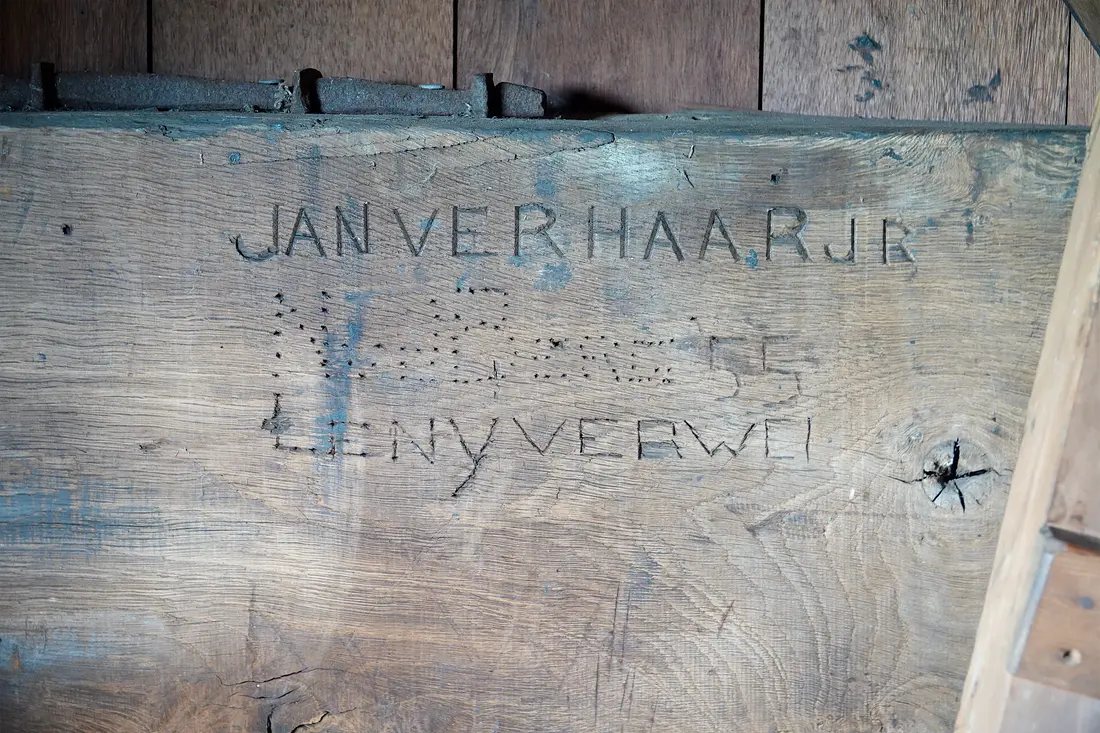 JAN VERHAAR JR
55
LENY VERWEI